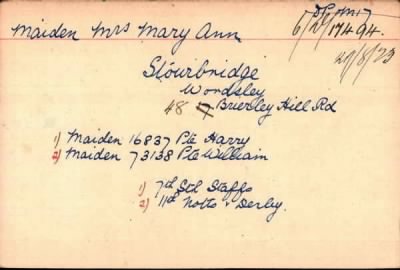 Maiden Mrs Mary Ann
6/2/17494.
29/8/23
Stourbridge
Wordsley
48 Brierley Hill Rd
1) Maiden 16837 Pte Harry
2) Maiden 73138 Pte William
1) 7th Sth Staffs
2) 11th Notts & Derby.